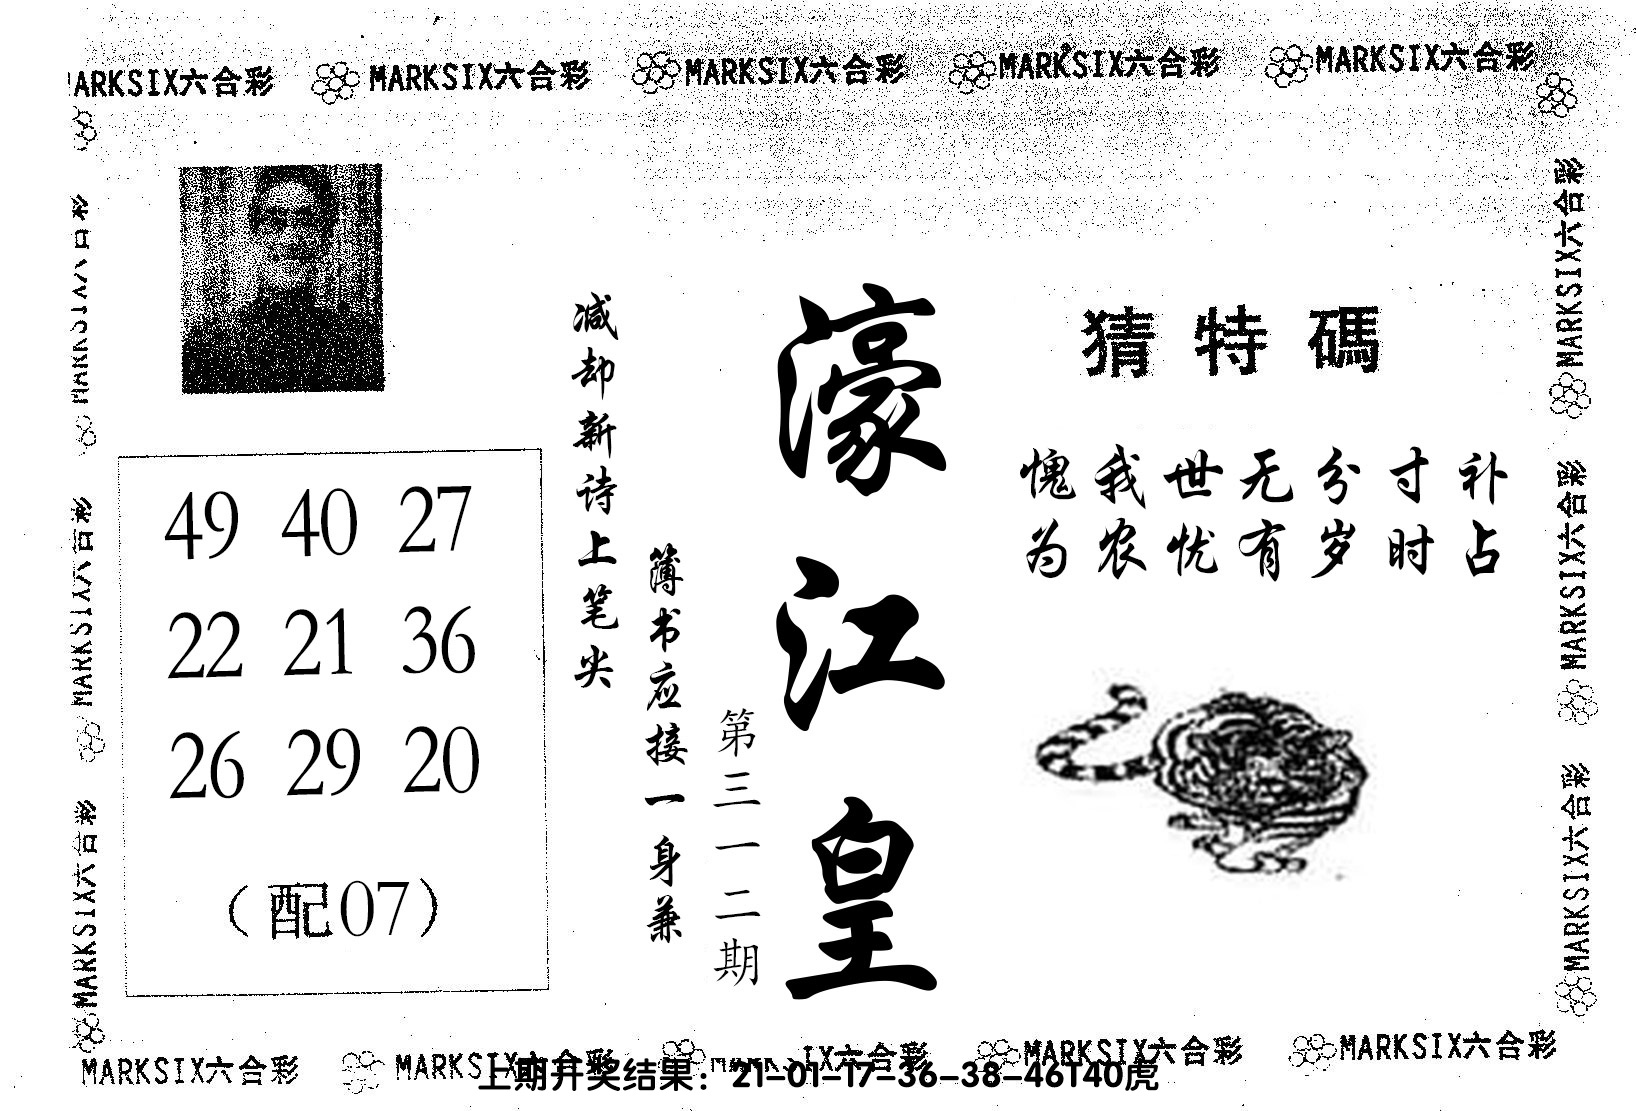 MARKSIX六合彩 MARKSIX六合彩 MARKSIX六合彩 MARKSIX六合彩 MARKSIX六合彩
减却新诗上笔尖
簿书应接一身兼
第三一二期
濠江皇
猜特碼
愧我世无分寸补
为农忧有岁时占
49 40 27
22 21 36
26 29 20
(配07)
MARKSIX六合彩
MARKSIX六合彩
MARKSIX六合彩
MARKSIX六合彩
MARKSIX六合彩
MARKSIX六合彩
MARKSIX六合彩 MARKSIX六合彩 IX六合彩 MARKSIX六合彩 MARKSIX六合彩
上期开奖结果：21-01-17-36-38-46T40虎